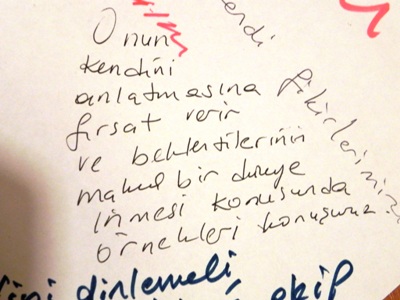 Onun
kendini
anlatmasına
fırsat verir
ve beklentilerinin
makul bir düzeye
inmesi konusunda
örnekleri konuşuruz
fikirlerinin
dinlemeli,
ekip